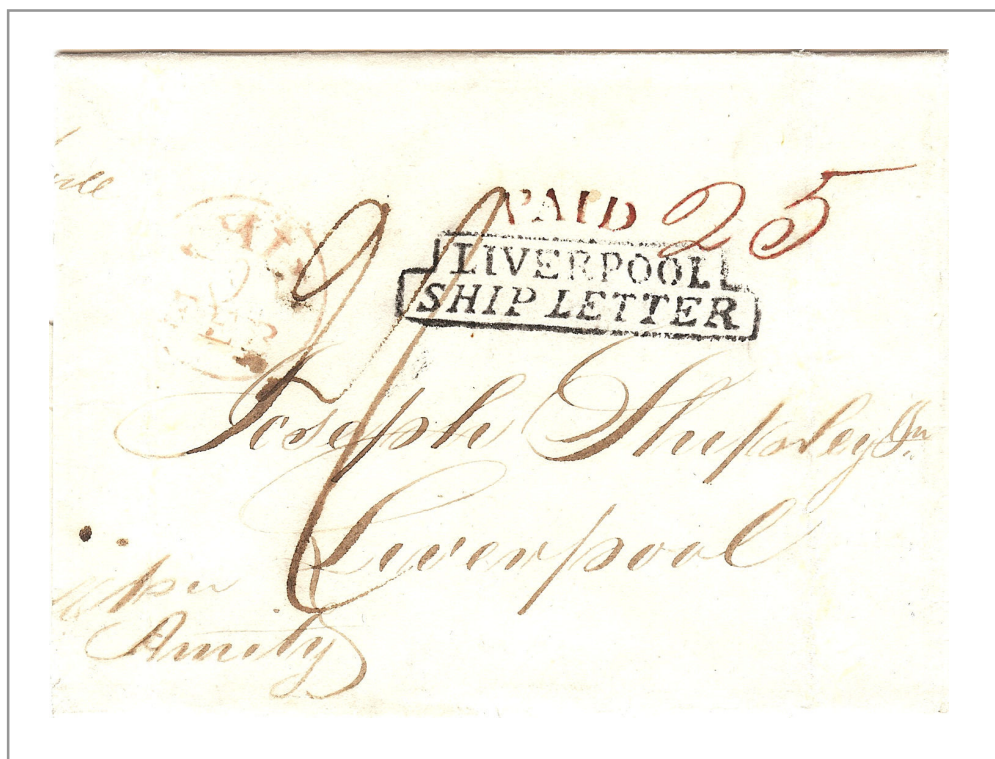 PAID 25
LIVERPOOL
SHIP LETTER
Joseph Shipley Jun
Liverpool
per
Amity